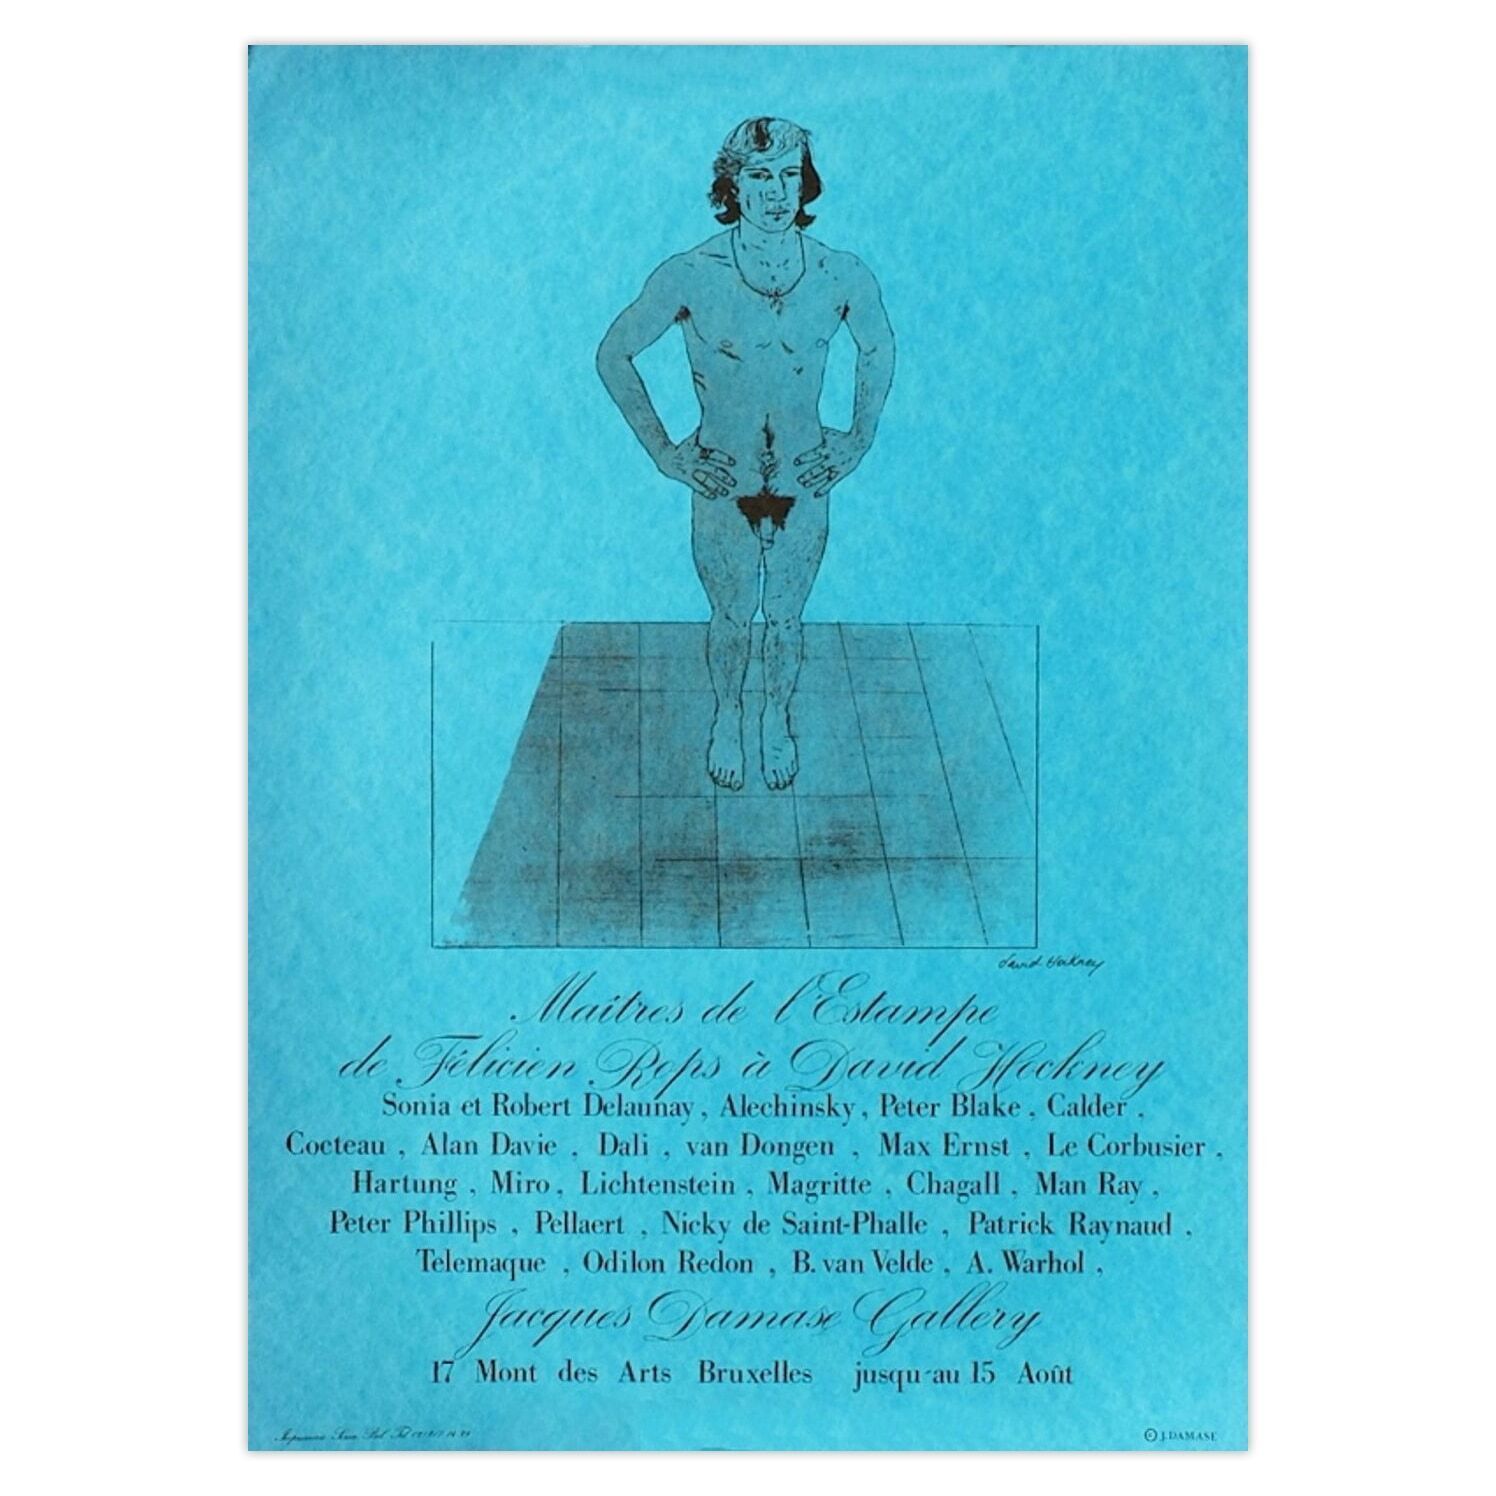 David Hockney
Maîtres de l'Estampe
de Félicien Rops à David Hockney
Sonia et Robert Delaunay, Alechinsky, Peter Blake, Calder,
Cocteau, Alan Davie, Dali, van Dongen, Max Ernst, Le Corbusier,
Hartung, Miro, Lichtenstein, Magritte, Chagall, Man Ray,
Peter Phillips, Pellaert, Nicky de Saint-Phalle, Patrick Raynaud,
Telemaque, Odilon Redon, B. van Velde, A. Warhol,
Jacques Damase Gallery
17 Mont des Arts Bruxelles jusqu-au 15 Août
© J. DAMASE